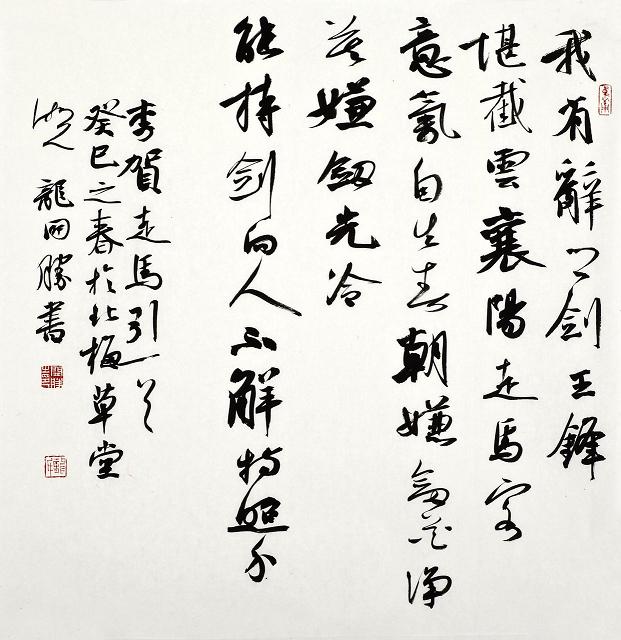 我有辭乡剑玉鋒
堪截雲襄陽走馬客
意氣自生春朝嫌劍花净
暮嫌劒光冷
能持剑向人不解持照身
李賀走馬引一首
癸巳之春於北梅草堂
龍開勝書